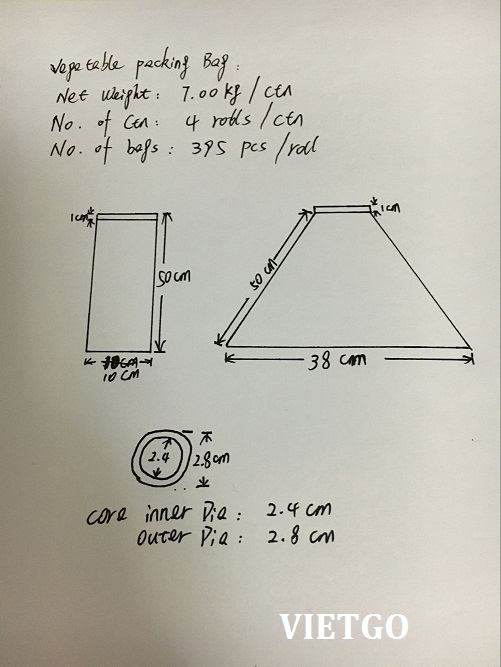 vegetable packing Bag:
Net Weight: 7.00 kg/ctn
No. of Ctn: 4 rolls/ctn
No. of bags: 395 pcs/roll
1cm
50 cm
10 CM
1cm
50 cm
38 cm
2.4
2.8cm
core inner Dia: 2.4 cm
outer Dia: 2.8 cm
VIETGO